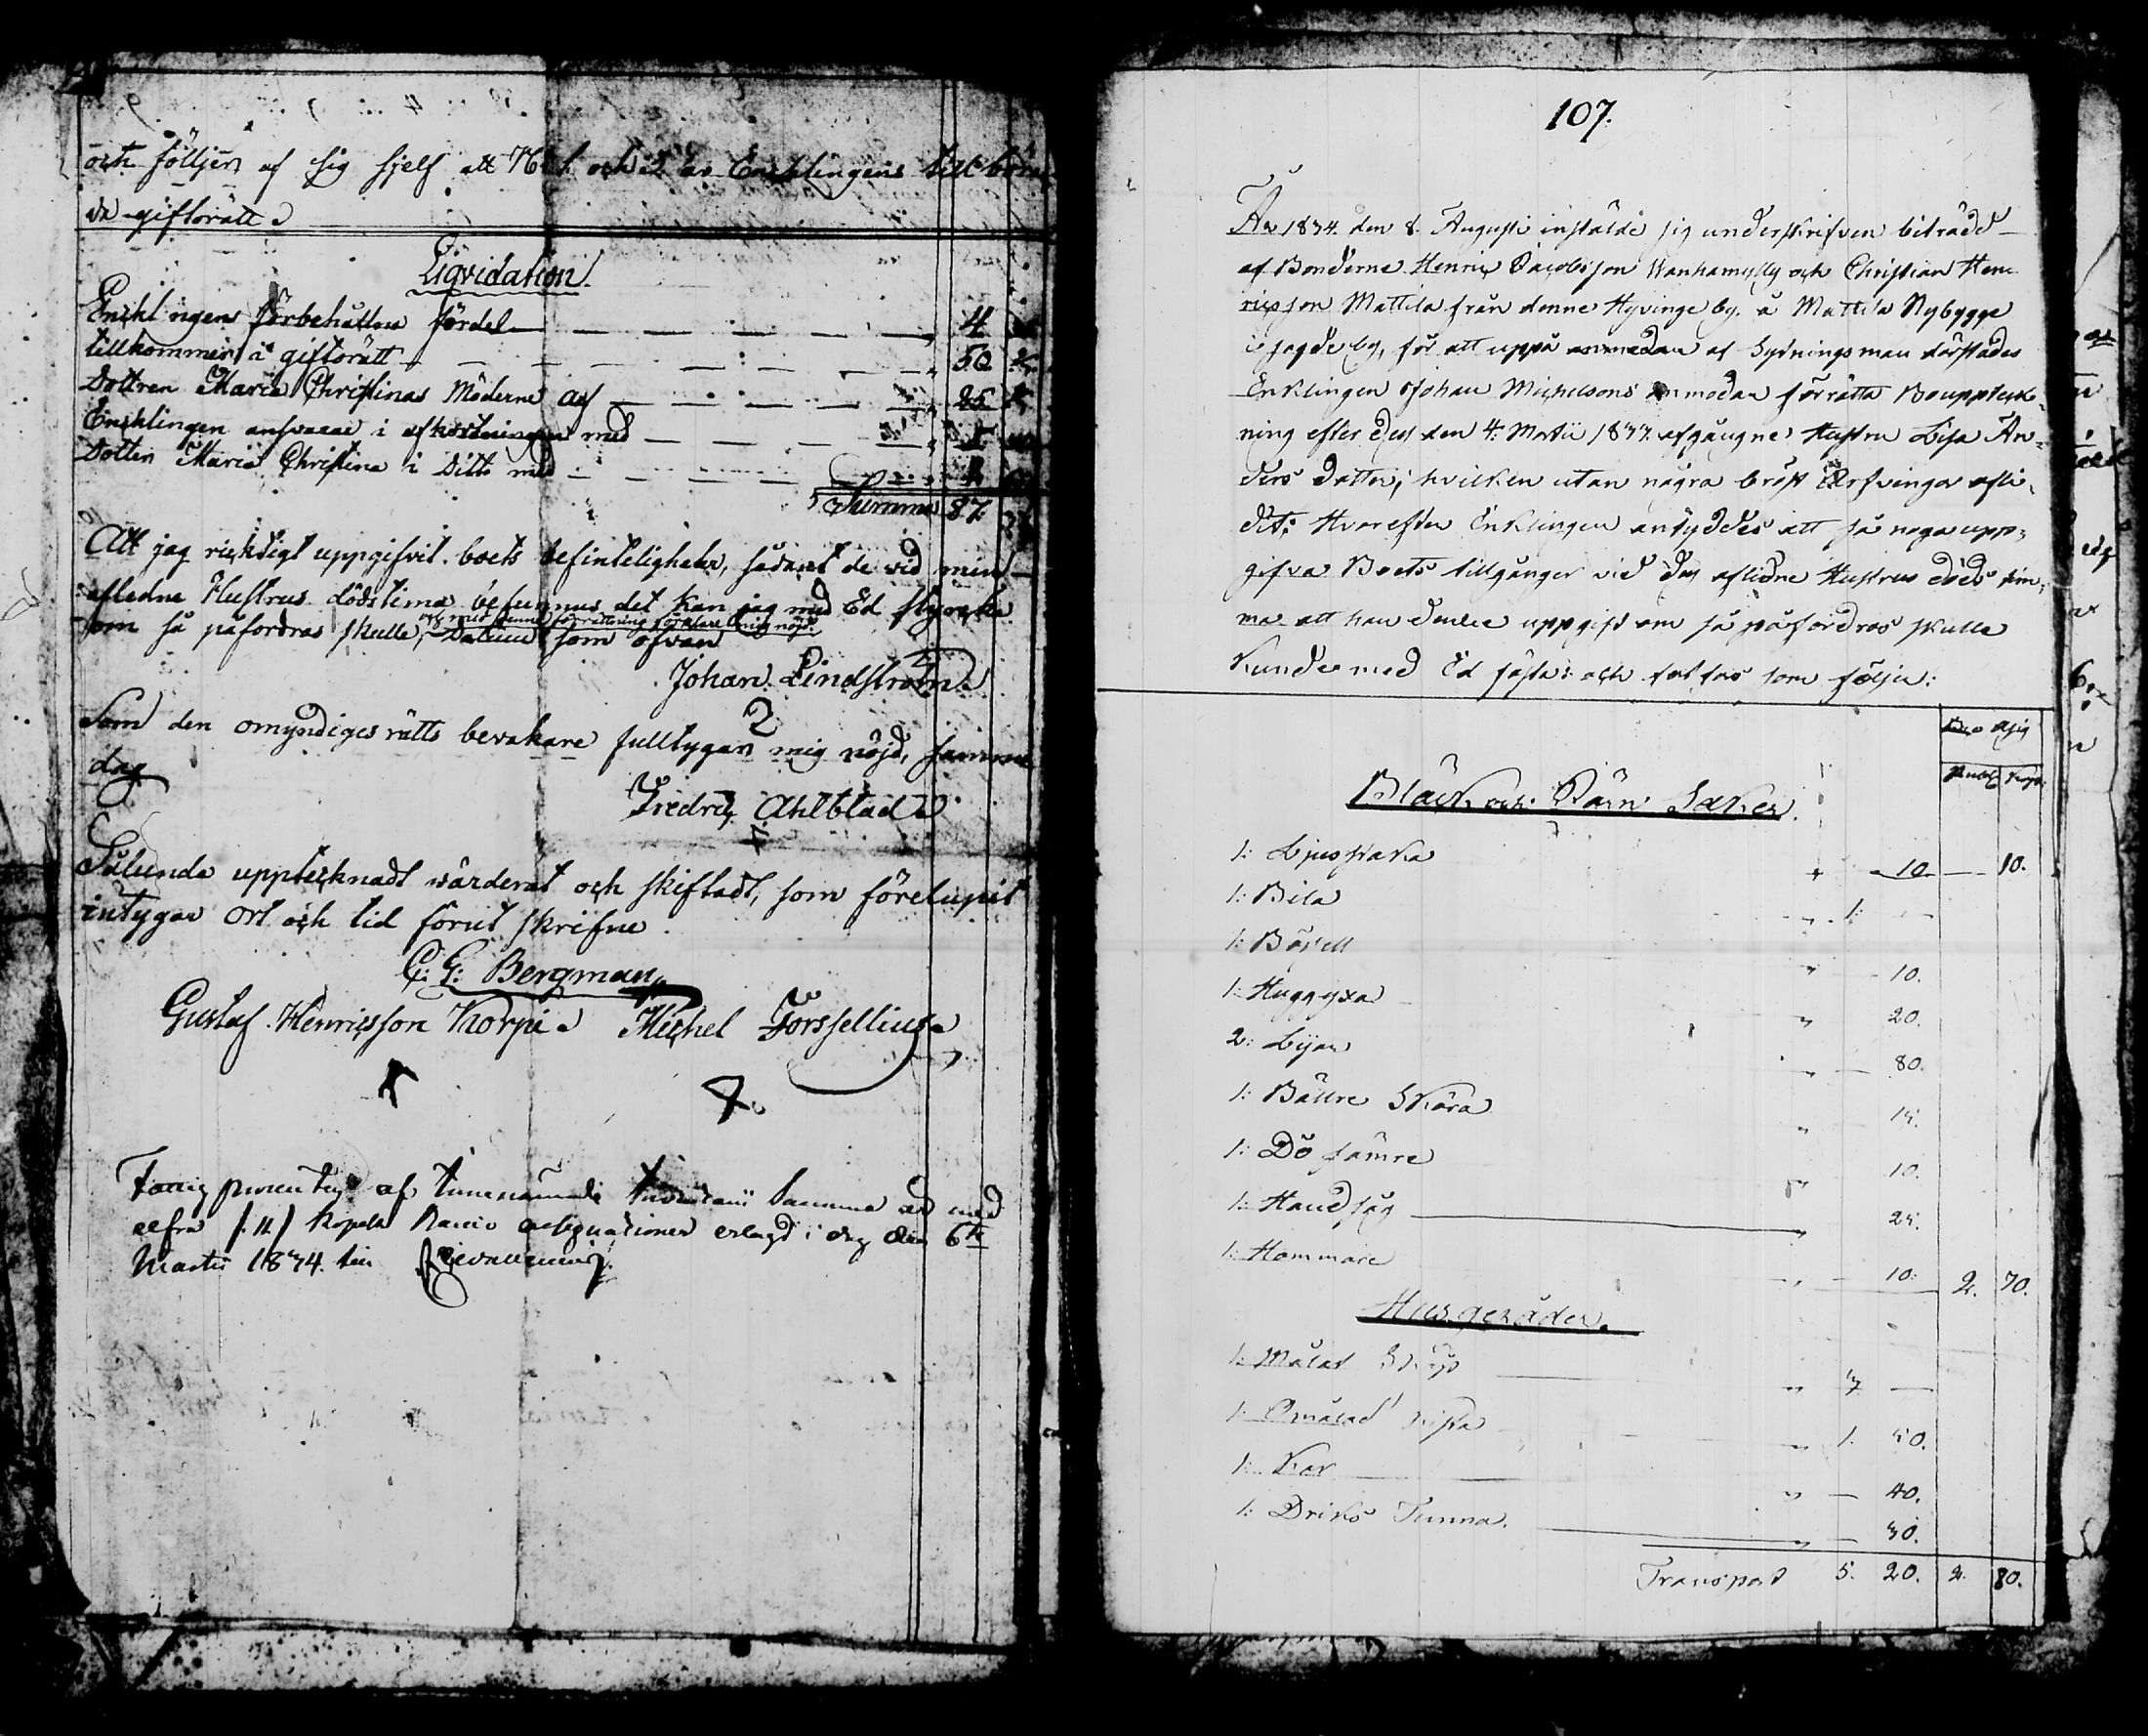 och följer af sig sjelf att 76 och 2 är Encklingens tillhöran
de giftorätt
Liqvidation
Encklingens förbehållna fördel 4
tillkommer i giftorätt 50
Dottren Maria Christinas Möderne arf 25
Encklingen ansvarar i afkortningen med
Dottren Maria Christina i Ditto med
Summa 87.
Att jag ricktigt uppgifvit boets befinteligheter, sådant de vid min
afledne Hustrus dödstima befunnus det kan jag med Ed styrcka
och med denne förrättning förklarar mig nöjd.
som så påfordras skulle, Datum som ofvan
Johan Lindström
Som den omyndiges rätts bevakare fulltygar mig nöjd, samma
dag
Fredric Ahlblad
Sålunda uppteknadt wärderat och skiftadt, som förelupit
intygar Ort och tid förut skrifne.
C: G: Bergman
Gustaf Henricsson Korpi Michel Forssellius
Fattig procenten af Summa är med
elfva /: 11 / Kopek Banco assignationer erlagd i dag den 6te
Martii 1834. till
107.
År 1834 den 8. Augusti instälde sig underskrifven biträdd
af Bönderne Henric Jacobsson Wanhamylly och Christian Hen
ricsson Mattila från denne Hyvinge by, å Mattila Nybygge
i sagde by, för att uppå af Sytningsman därstädes
Enklingen Johan Michelsons anmodan förrätta Bouppteck-
ning efter dess den 4: Martii 1833 afgångne Hustru Lisa An-
ders dotter, hvilken utan några bröst Arfvingar afli-
dit; Hvarefter Enklingen antyddes att så noga upp-
gifva Boets tillgånger vid dess aflidne Hustrus döds tim-
ma att han denne uppgift om så påfordras skulle
kunde med Ed fästa: och som följer:
Bco Assig
Rubl Kop:
Bläck och Järn Saker.
1: Ljusstaka 10 10.
1: Bila 1:
1: Böxell 10.
1: Huggyxa 20.
2: Lijar 80.
1: Bättre Skära 15.
1: Do sämre 10.
1: Handsåg 25.
1: Hammare 10. 2. 70.
Husgeråder.
1: Målat Skåp 3
1: Omålad Kista 1. 50.
1: Kar 40.
1: Dricks Tunna 30.
Transport 5. 20. 2. 80.